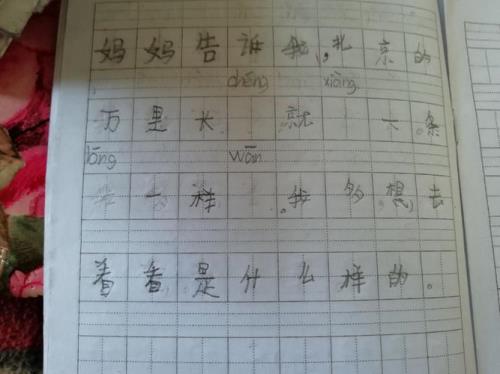 妈妈告诉我,北京的
chéng xiàng
万里长 就 一条
lóng wǒ
一样。我多想去
看看是什么样的。